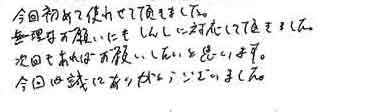 今回初めて使わせて頂きました。
無理なお願いにもしんしに対応して頂きました。
次回もあればお願いしたいと思います。
今回は誠にありがとうございました。